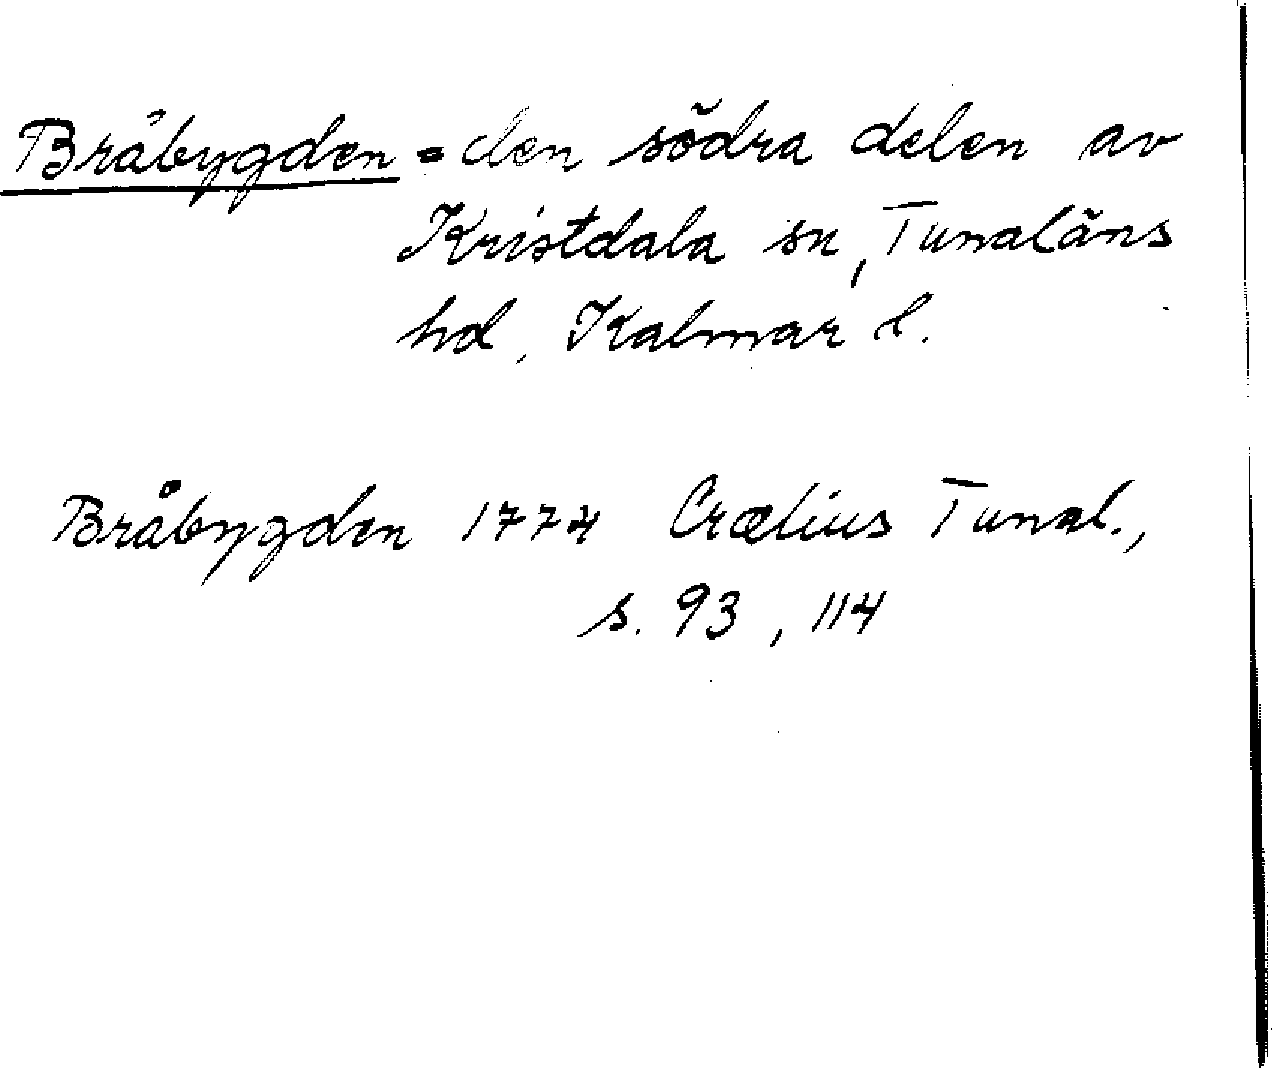 Bråbygden = den södra delen av
Kristdala sn, Tunaläns
hd, Kalmar l.
Bråbygden 1774 Crælius Tunal.,
s. 93, 114